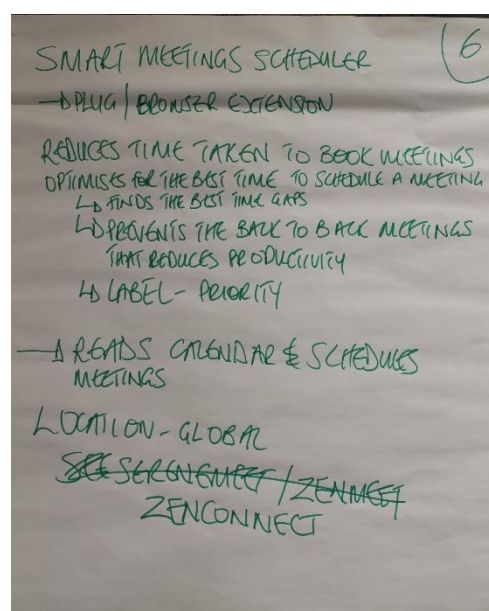 6
SMART MEETINGS SCHEDULER
→ PLUG / BROWSER EXTENSION
REDUCES TIME TAKEN TO BOOK MEETINGS
OPTIMISES FOR THE BEST TIME TO SCHEDULE A MEETING
↳ FINDS THE BEST TIME GAPS
↳ PREVENTS THE BACK TO BACK MEETINGS
THAT REDUCES PRODUCTIVITY
↳ LABEL - PRIORITY
→ READS CALENDAR & SCHEDULES
MEETINGS
LOCATION - GLOBAL
SERENEMEET / ZENMEET
ZENCONNECT